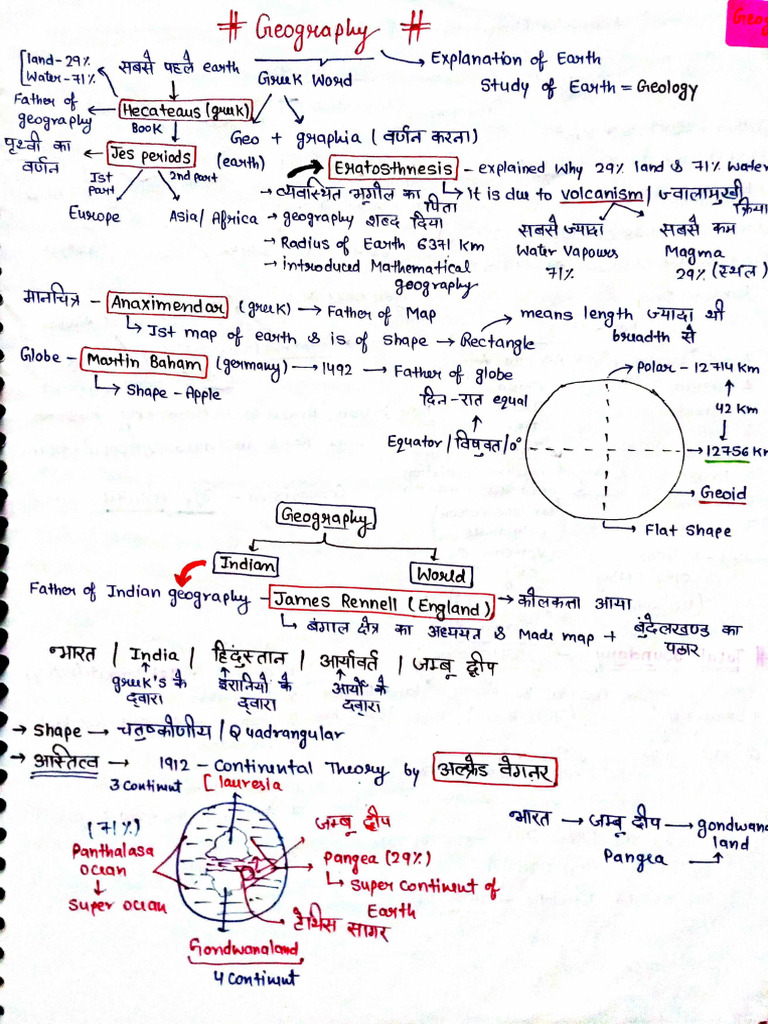 # Geography #
Geog
[land - 29%
Water - 71%
सबसे पहले earth
Greek Word
Explanation of Earth
Study of Earth = Geology
Father of
geography
Hecateaus (greek)
BOOK
Geo + graphia (वर्णन करना)
(earth)
पृथ्वी का
वर्णन
Jes periods
Ist
part
2nd part
Europe
Asia/ Africa
Eratosthnesis - explained Why 29% land & 71% Water
- व्यवस्थित भूगोल का
पिता
It is due to volcanism / ज्वालामुखी
क्रिया
→ geography शब्द दिया
- Radius of Earth 6371 Km
- introduced Mathematical
geography
सबसे ज्यादा
Water Vapours
71%
सबसे कम
Magma
29% (स्थल)
मानचित्र - Anaximendar (greek) → Father of Map
Ist map of earth & is of shape → Rectangle
means length ज्यादा थी
breadth से
Globe - Martin Baham (germany) → 1492 → Father of globe
Shape - Apple
दिन - रात equal
Equator / विषुवत / 0°
Polar - 12714 Km
42 Km
12756 Km
Geoid
Flat Shape
Geography
Indian
World
Father of Indian geography - James Rennell (England) → कोलकत्ता आया
बंगाल क्षेत्र का अध्ययन & Made map + बुंदेलखण्ड का
पठार
भारत / India / हिंदुस्तान / आर्यावर्त / जम्बू द्वीप
greek's के
द्वारा
इरानियों के
द्वारा
आर्यो के
द्वारा
→ Shape → चतुष्कोणीय / Quadrangular
→ अस्तित्व → 1912 - Continental Theory by अल्फ्रेड वेगनर
3 Continent [Lauresia
(71%)
Panthalasa
Ocean
Super Ocean
जम्बू द्वीप
Pangea (29%)
Super Continent of
Earth
टेथिस सागर
Gondwanaland
4 Continent
भारत → जम्बू द्वीप → gondwana
land
Pangea